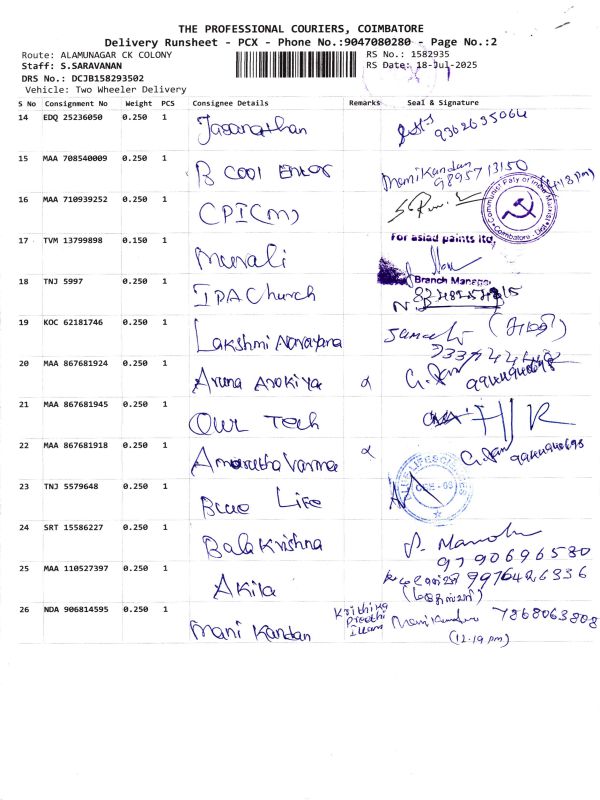 THE PROFESSIONAL COURIERS, COIMBATORE
Delivery Runsheet - PCX - Phone No.:9047080280 - Page No.:2
Route: ALAMUNAGAR CK COLONY RS No.: 1582935
Staff: S.SARAVANAN RS Date: 18-Jul-2025
DRS No.: DCJB158293502
Vehicle: Two Wheeler Delivery
S No Consignment No Weight PCS Consignee Details Remarks Seal & Signature
14 EDQ 25236050 0.250 1 Jaganathan
9362635064
15 MAA 708540009 0.250 1 B Cool Enter
ManiKandan
9895713150
(4:18 pm)
16 MAA 710939252 0.250 1 CPI(M)
Communist Party of India Marxist
Coimbatore - Dist
17 TVM 13799898 0.150 1 Murali
For asiad paints ltd,
Branch Manager
18 TNJ 5997 0.250 1 IPA Church
19 KOC 62181746 0.250 1 Lakshmi Narayana
20 MAA 867681924 0.250 1 Aruna Arokiya
21 MAA 867681945 0.250 1 Our Tech
22 MAA 867681918 0.250 1 Amarutha Varma
23 TNJ 5579648 0.250 1 Blue Life
24 SRT 15586227 0.250 1 Balakrishna
P. Mano
9790696580
25 MAA 110527397 0.250 1 Akila
9976426336
26 NDA 906814595 0.250 1 Mani Kandan Krithika Preethi Illam
7868063808
(12.19 pm)